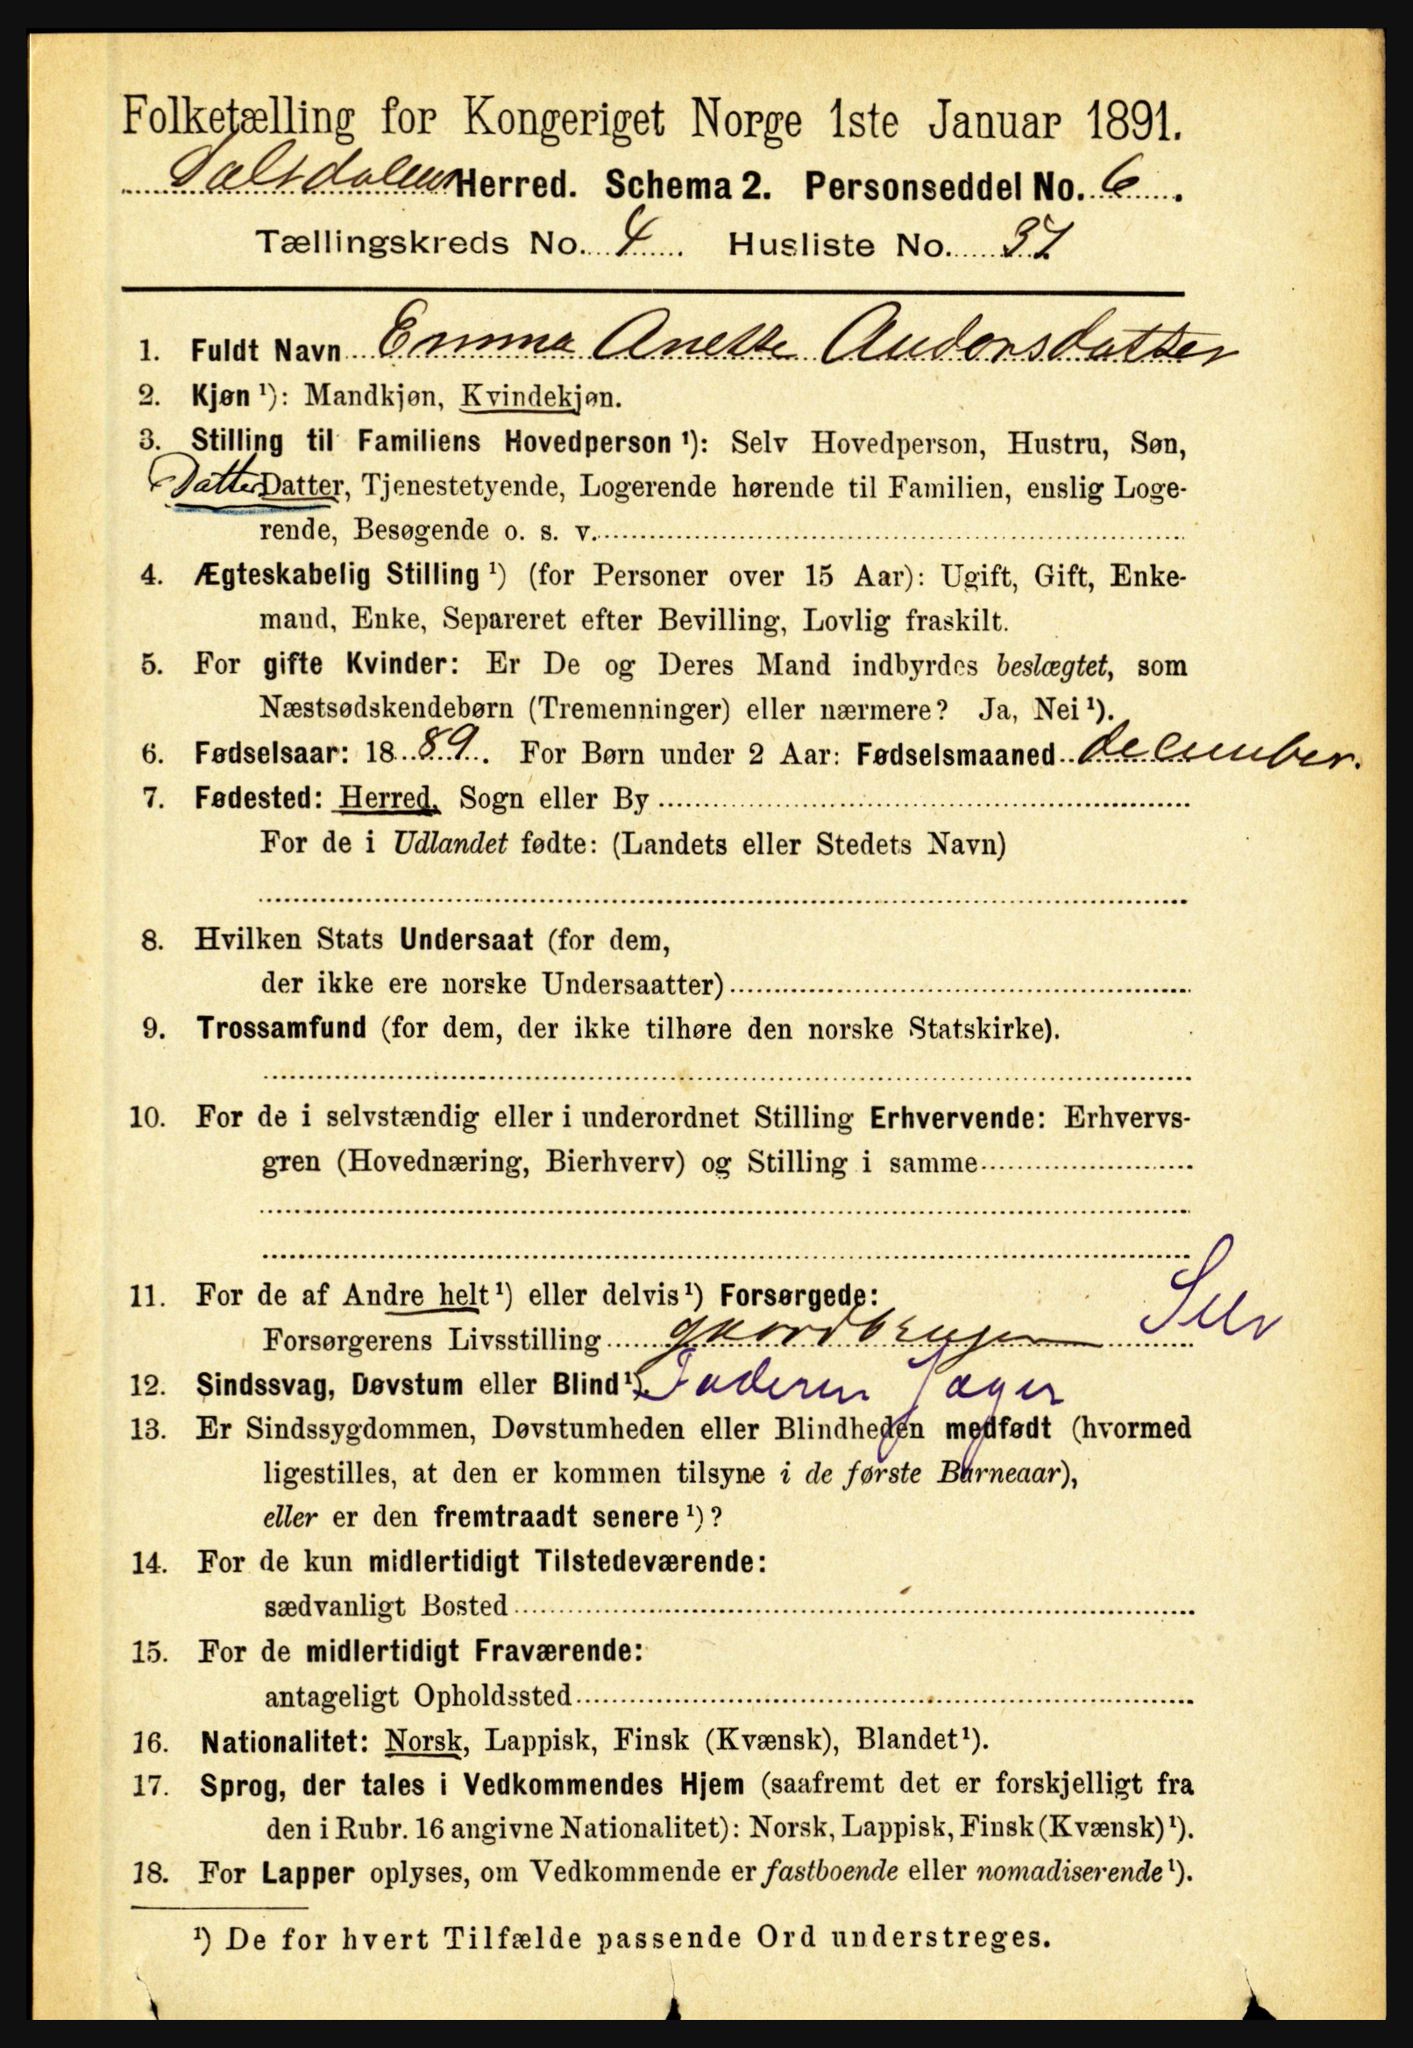 Folketælling for Kongeriget Norge 1ste Januar 1891.
Saltdalen Herred. Schema 2. Personseddel No. 6.
Tællingskreds No. 4. Husliste No. 37
1. Fuldt Navn Emma Anette Andersdatter
2. Kjøn ¹): Mandkjøn, Kvindekjøn.
3. Stilling til Familiens Hovedperson ¹): Selv Hovedperson, Hustru, Søn,
Datter Datter, Tjenestetyende, Logerende hørende til Familien, enslig Loge-
rende, Besøgende o. s. v.
4. Ægteskabelig Stilling ¹) (for Personer over 15 Aar): Ugift, Gift, Enke-
mand, Enke, Separeret efter Bevilling, Lovlig fraskilt.
5. For gifte Kvinder: Er De og Deres Mand indbyrdes beslægtet, som
Næstsødskendebørn (Tremenninger) eller nærmere? Ja, Nei ¹).
6. Fødselsaar: 1889. For Børn under 2 Aar: Fødselsmaaned december.
7. Fødested: Herred, Sogn eller By
For de i Udlandet fødte: (Landets eller Stedets Navn)
8. Hvilken Stats Undersaat (for dem,
der ikke ere norske Undersaatter)
9. Trossamfund (for dem, der ikke tilhøre den norske Statskirke).
10. For de i selvstændig eller i underordnet Stilling Erhvervende: Erhvervs-
gren (Hovednæring, Bierhverv) og Stilling i samme
11. For de af Andre helt ¹) eller delvis ¹) Forsørgede:
Forsørgerens Livsstilling gaardbruger Selv
12. Sindssvag, Døvstum eller Blind ¹). Faderen Jæger
13. Er Sindssygdommen, Døvstumheden eller Blindheden medfødt (hvormed
ligestilles, at den er kommen tilsyne i de første Barneaar),
eller er den fremtraadt senere ¹)?
14. For de kun midlertidigt Tilstedeværende:
sædvanligt Bosted
15. For de midlertidigt Fraværende:
antageligt Opholdssted
16. Nationalitet: Norsk, Lappisk, Finsk (Kvænsk), Blandet ¹).
17. Sprog, der tales i Vedkommendes Hjem (saafremt det er forskjelligt fra
den i Rubr. 16 angivne Nationalitet): Norsk, Lappisk, Finsk (Kvænsk) ¹).
18. For Lapper oplyses, om Vedkommende er fastboende eller nomadiserende ¹).
¹) De for hvert Tilfælde passende Ord understreges.